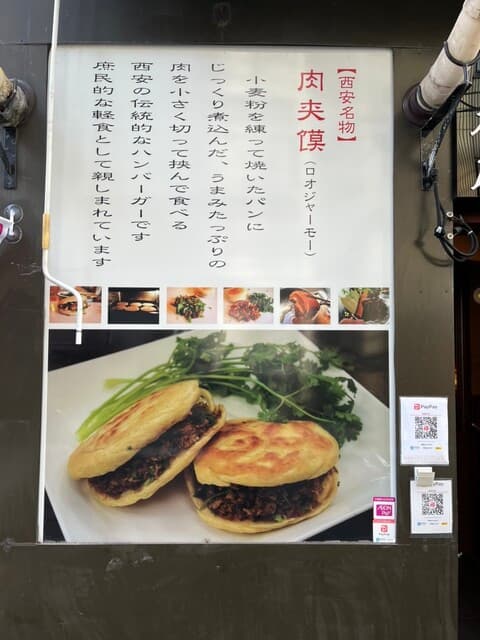 【西安名物】
肉夹馍（ロオジャーモー）
小麦粉を練って焼いたパンに
じっくり煮込んだ、うまみたっぷりの
肉を小さく切って挟んで食べる
西安の伝統的なハンバーガーです
庶民的な軽食として親しまれています
PayPay
PayPay
AEON
Pay
PayPay